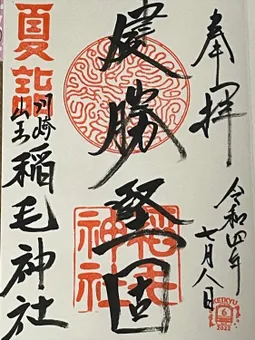 奉拝
令和四年
七月八日
慶勝堅固
稲毛神社
夏詣
川崎
山王
稲毛神社
KEIKYU
6
2022